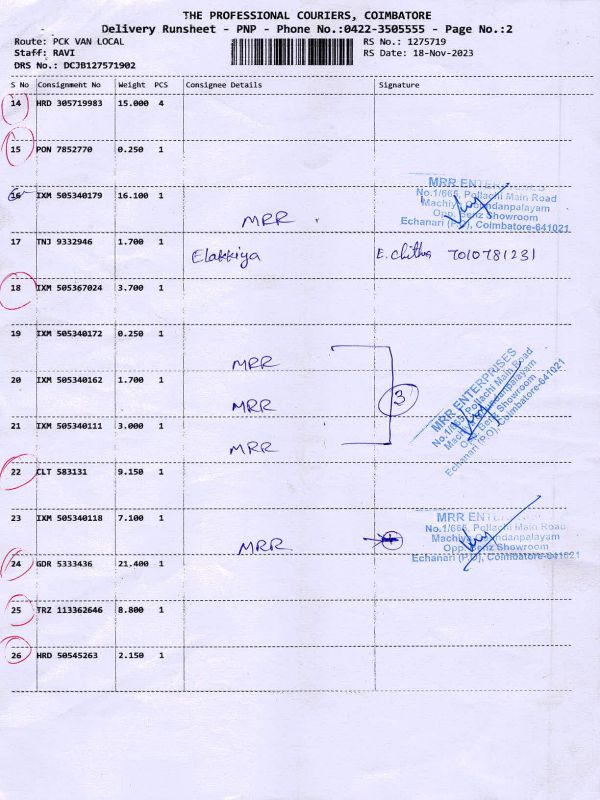 THE PROFESSIONAL COURIERS, COIMBATORE
Delivery Runsheet - PNP - Phone No.:0422-3505555 - Page No.:2
Route: PCK VAN LOCAL
RS No.: 1275719
Staff: RAVI
RS Date: 18-Nov-2023
DRS No.: DCJB127571902
S No Consignment No Weight PCS Consignee Details Signature
14 HRD 305719983 15.000 4
15 PON 7852770 0.250 1
16 IXM 505340179 16.100 1
MRR
MRR ENTERPRISES
No.1/665, Pollachi Main Road
Opp. Benz Showroom
Echanari (P.O), Coimbatore-641021
17 TNJ 9332946 1.700 1 Elakkiya E. Chithra 7010781231
18 IXM 505367024 3.700 1
19 IXM 505340172 0.250 1
MRR
20 IXM 505340162 1.700 1
MRR
3
MRR ENTERPRISES
No.1/665, Pollachi Main Road
Opp. Benz Showroom
Echanari (P.O), Coimbatore-641021
21 IXM 505340111 3.000 1
MRR
22 CLT 583131 9.150 1
23 IXM 505340118 7.100 1
MRR
MRR ENTERPRISES
No.1/665, Pollachi Main Road
Opp. Benz Showroom
Echanari (P.O), Coimbatore-641021
24 GDR 5333436 21.400 1
25 TRZ 113362646 8.800 1
26 HRD 50545263 2.150 1